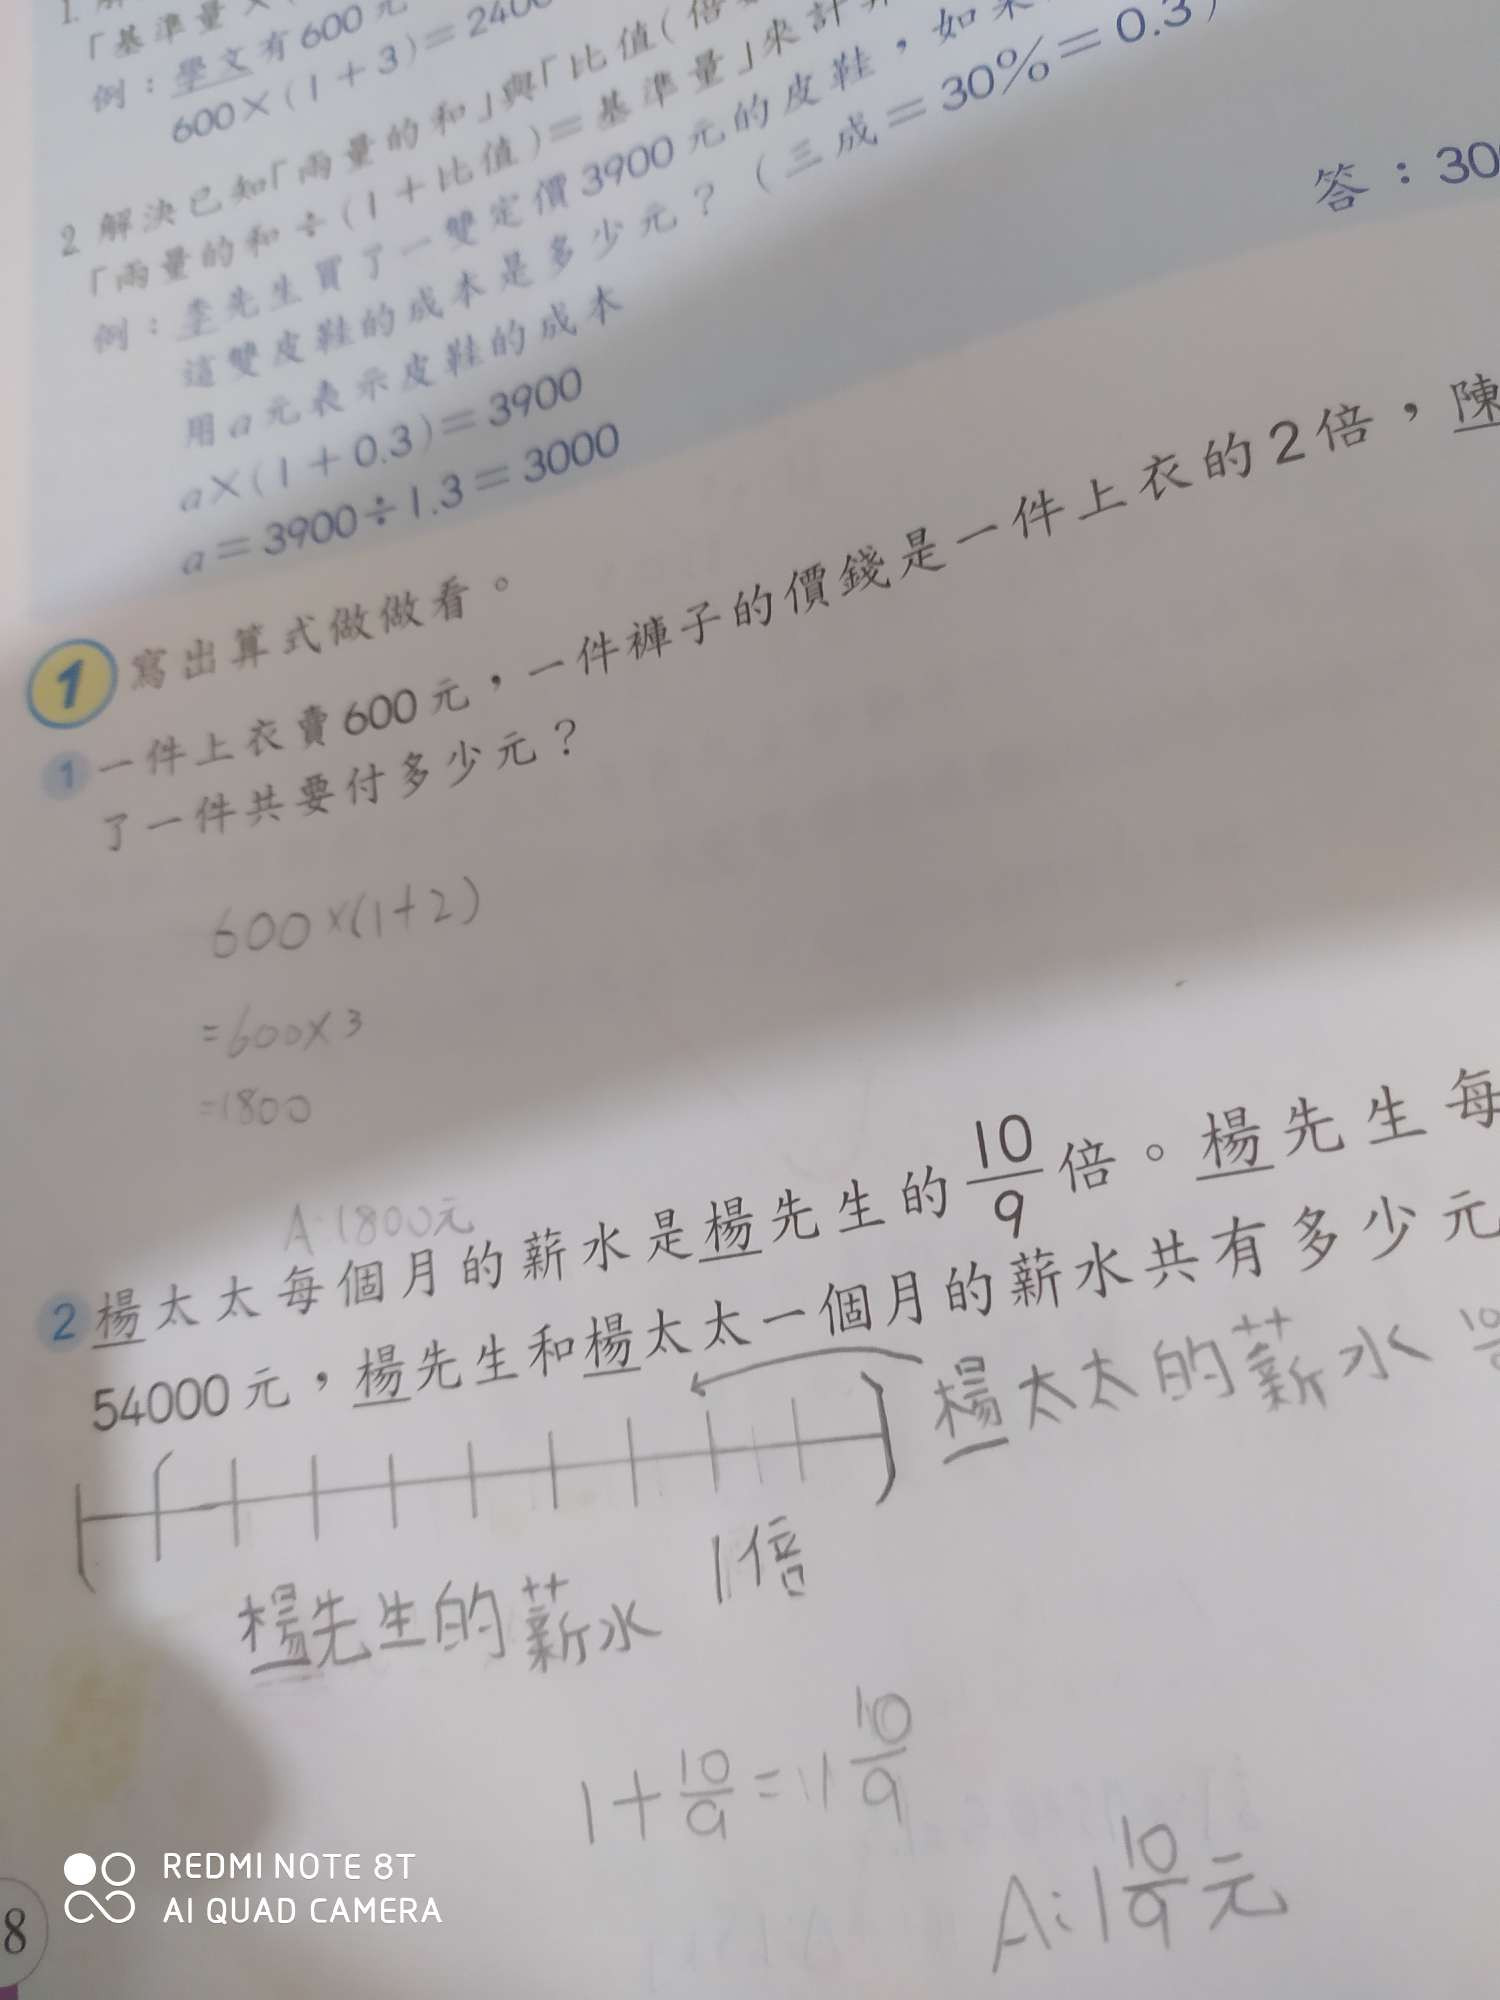 1. 解
「基準量×(
例：學文有600元
600×(1+3)=2400
2 解決已知「兩量的和」與「比值(倍
「兩量的和÷(1+比值)=基準量」來計算
例：李先生買了一雙定價3900元的皮鞋，如果
這雙皮鞋的成本是多少元？(三成=30%=0.3)
用a元表示皮鞋的成本
a×(1+0.3)=3900
a=3900÷1.3=3000
答：300
1 寫出算式做做看。
1 一件上衣賣600元，一件褲子的價錢是一件上衣的2倍，陳
了一件共要付多少元？
600×(1+2)
=600×3
=1800
A:1800元
2 楊太太每個月的薪水是楊先生的10/9倍。楊先生每
54000元，楊先生和楊太太一個月的薪水共有多少元
楊太太的薪水
1倍
楊先生的薪水
1+10/9=1 10/9
A:1 10/9元
8
REDMI NOTE 8T
AI QUAD CAMERA